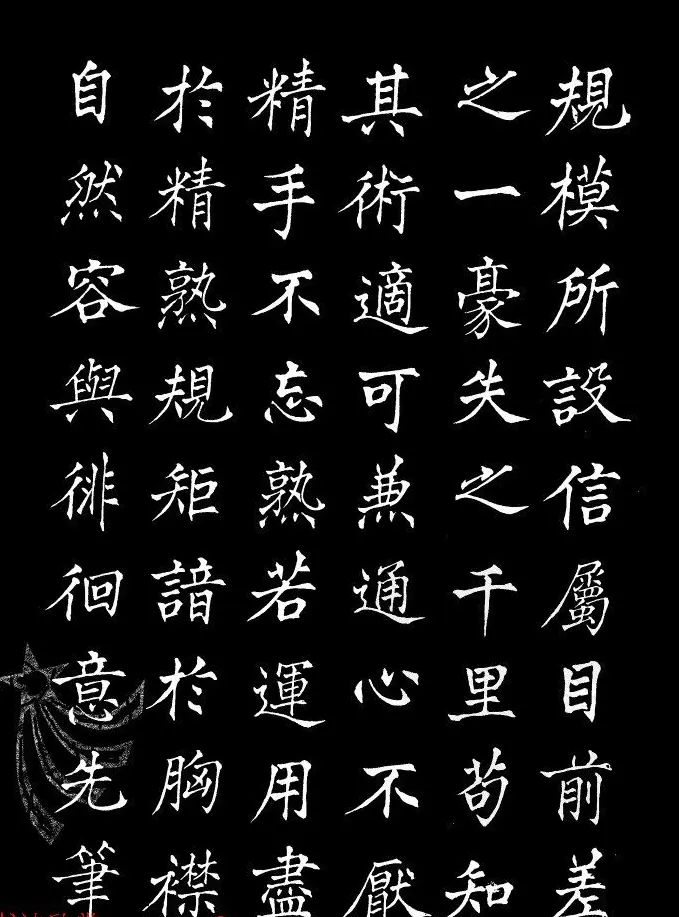 規模所設信屬目前差
之一豪失之千里苟知
其術適可兼通心不厭
精手不忘熟若運用盡
於精熟規矩諳於胸襟
自然容與徘徊意先筆